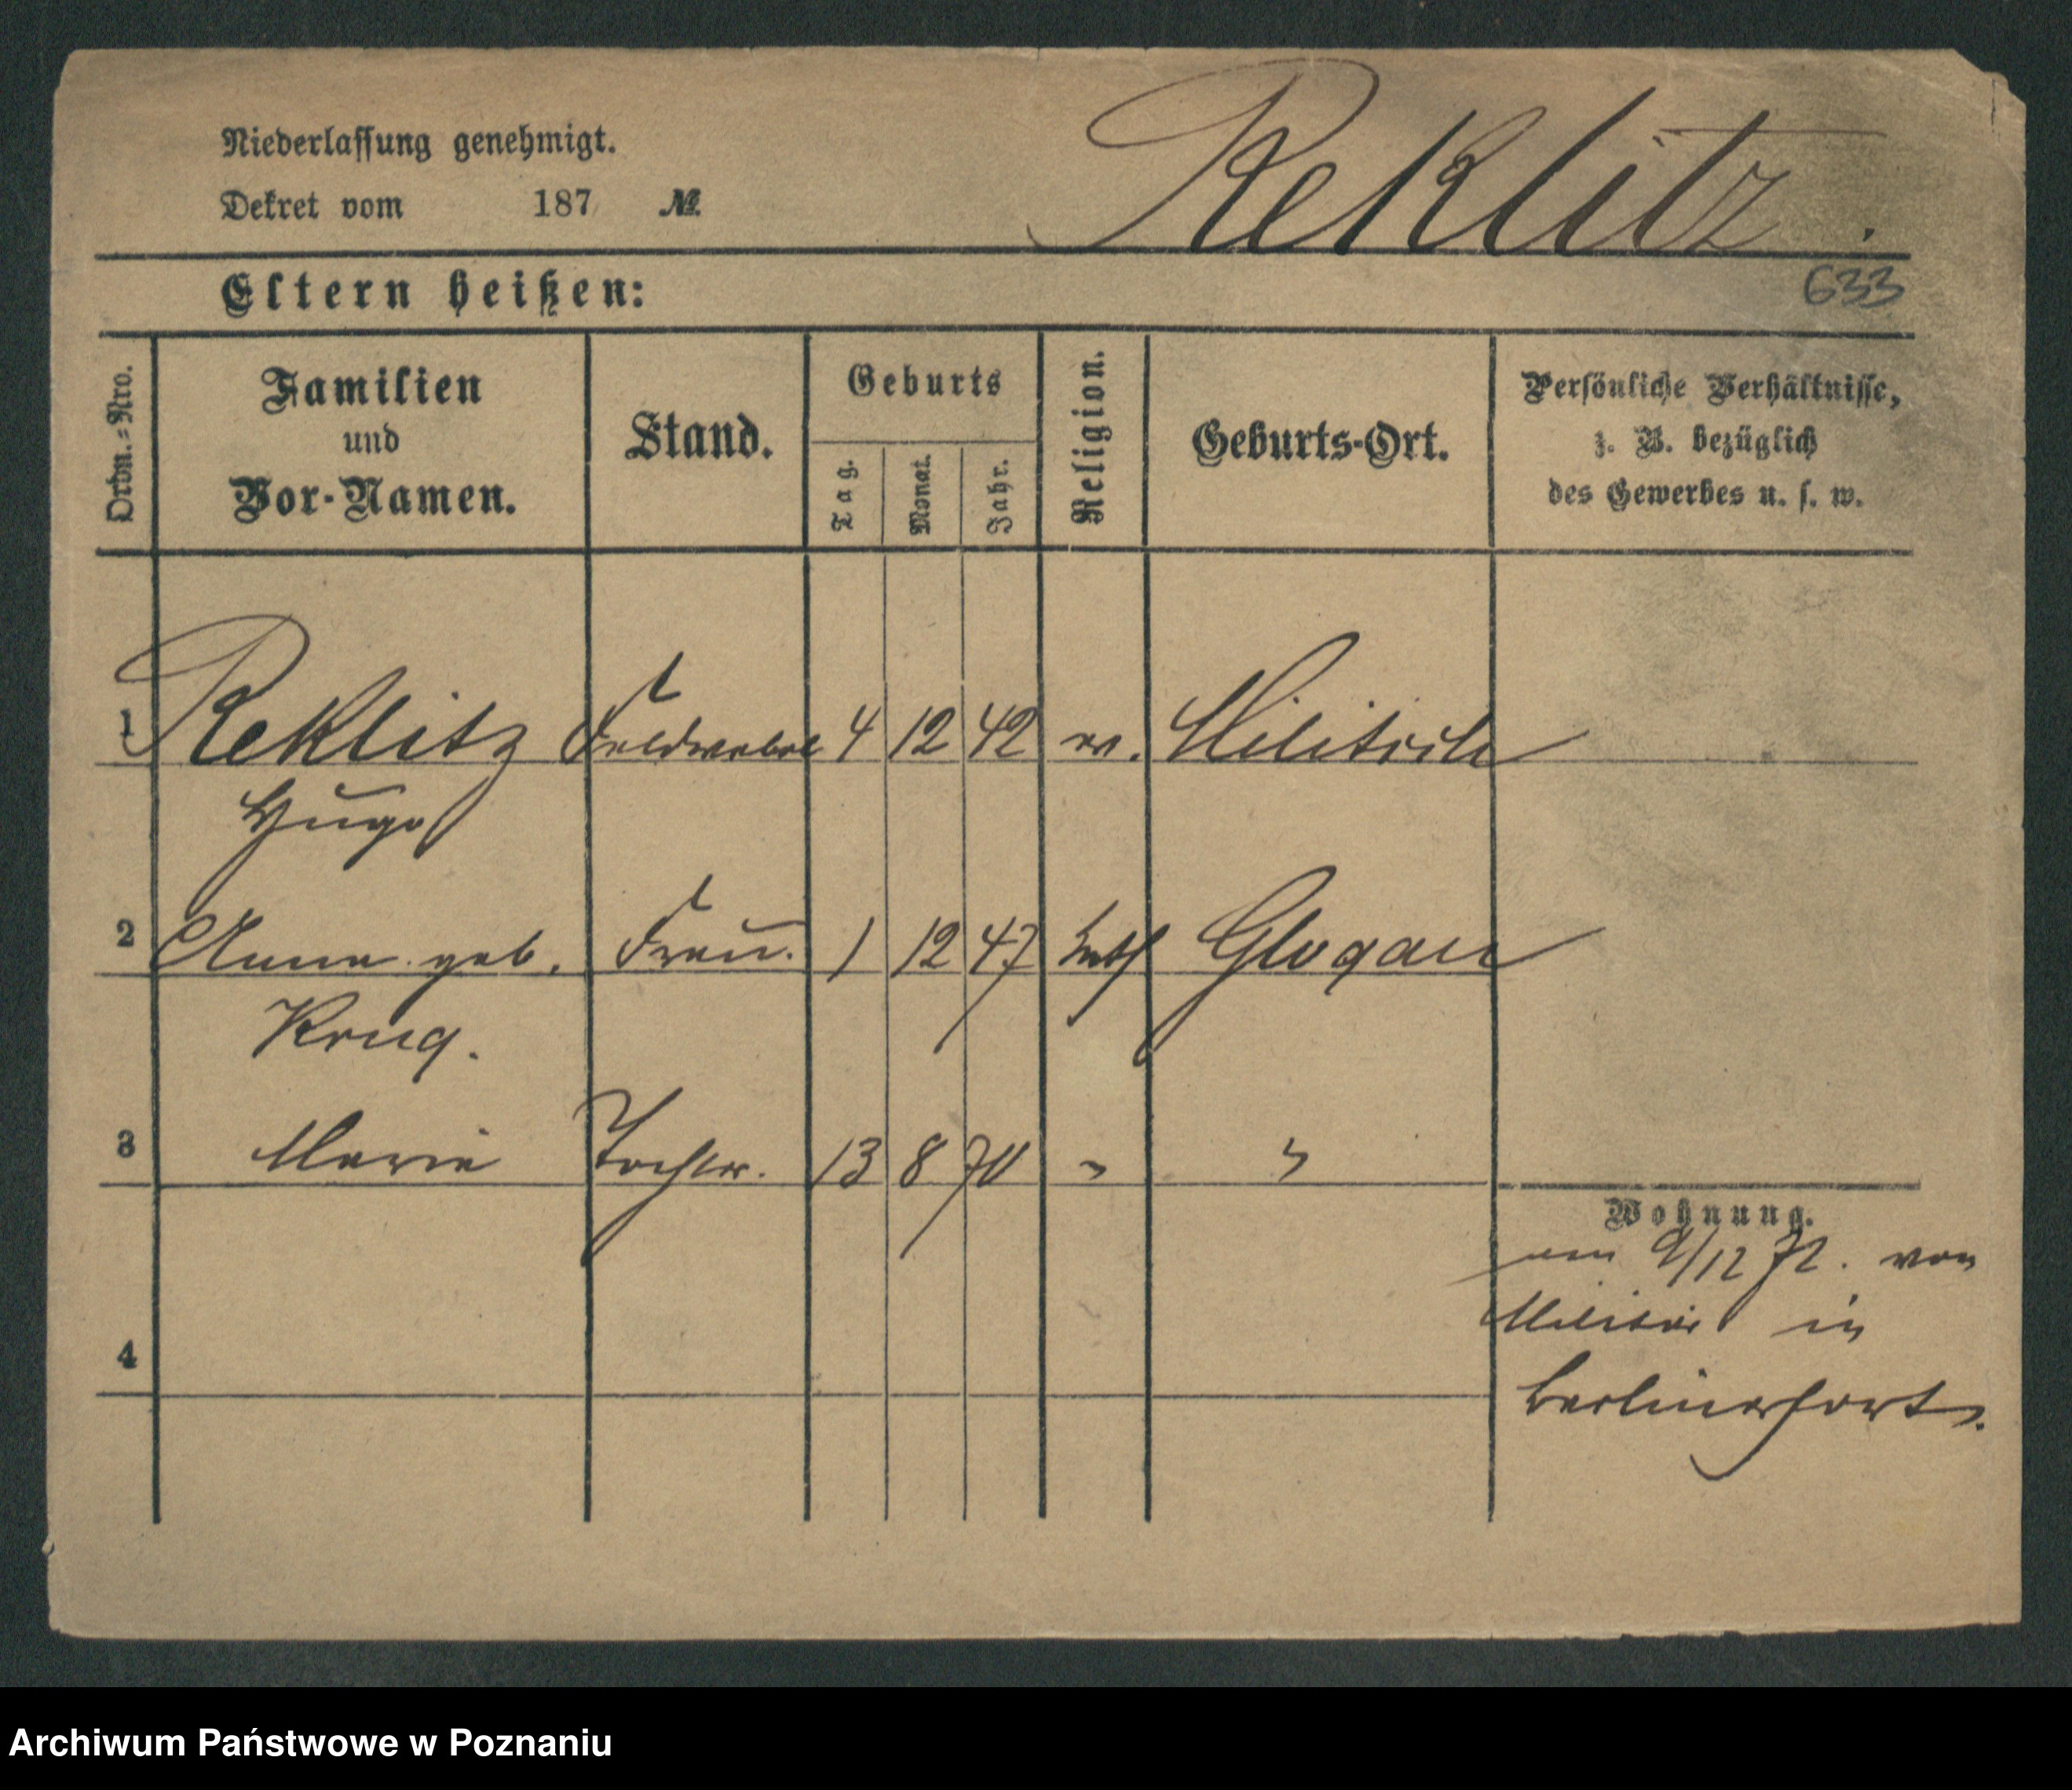 Niederlassung genehmigt.
Dekret vom 187 №
Reklitz.
633
Eltern heißen:
Ordn.-Nro.
Familien
und
Vor-Namen.
Stand.
Geburts
Tag.
Monat.
Jahr.
Religion.
Geburts-Ort.
Persönliche Verhältnisse,
z. B. bezüglich
des Gewerbes u. s. w.
1 Reklitz Feldwebel 4 12 42 ev. Militsch
Hugo
2 Anna geb. Frau. 1 12 47 kath Glogau
Krug.
3 Marie Tochter. 13 8 70 " "
Wohnung.
am 9/12 72. von
Militär in
4
Berlinerfort.
Archiwum Państwowe w Poznaniu